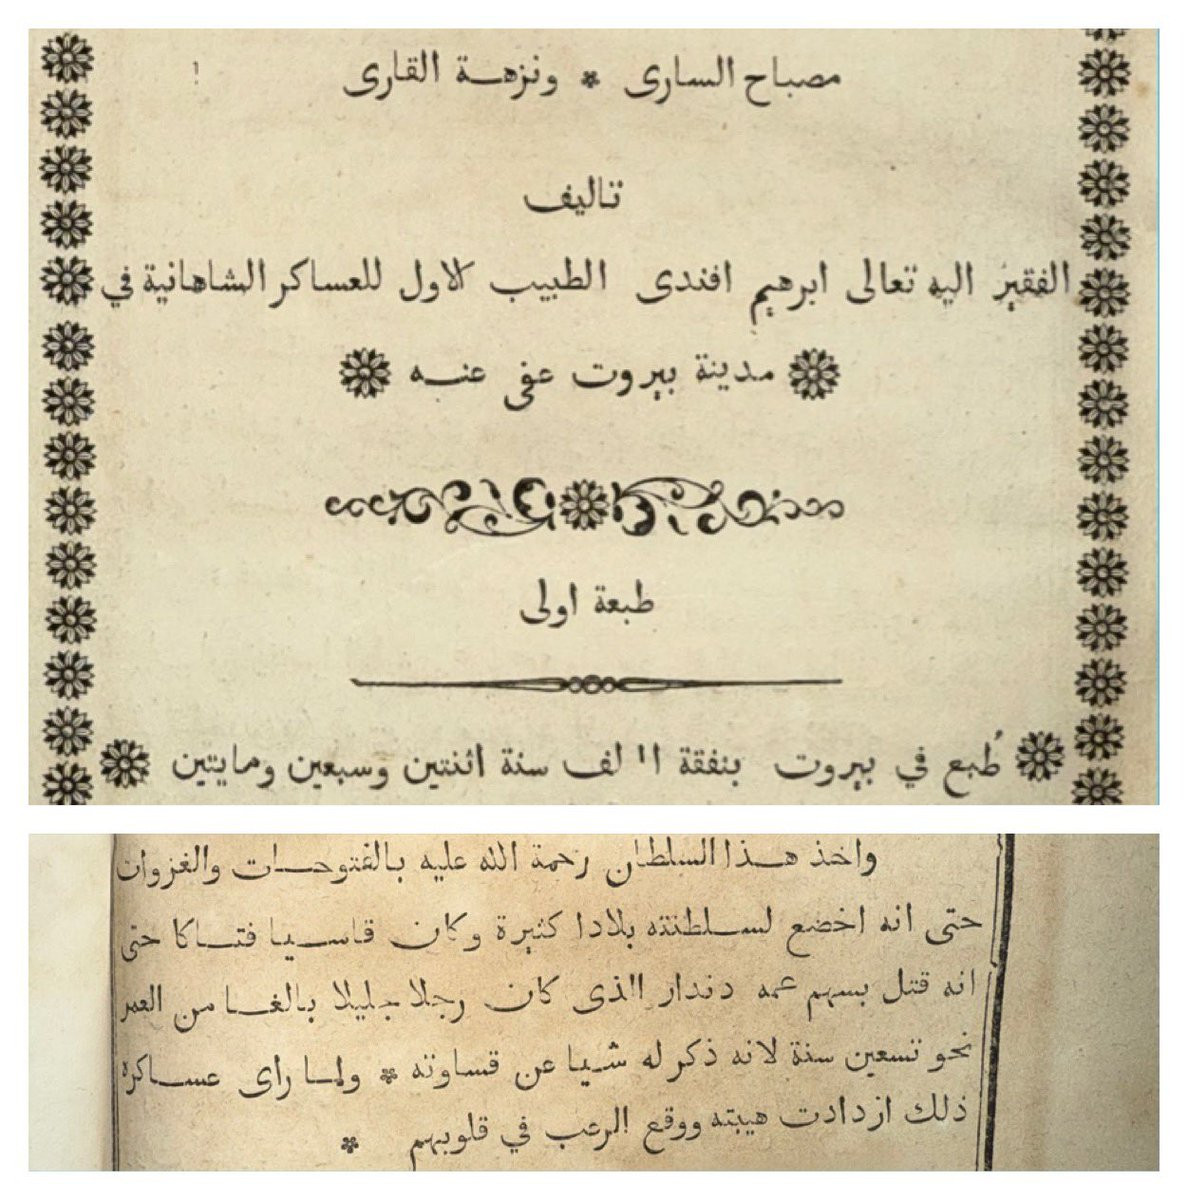 مصباح السارى * ونزهة القارى
تاليف
الفقير اليه تعالى ابرهيم افندى الطبيب الاول للعساكر الشاهانية في
مدينة بيروت عفى عنه
طبعة اولى
طُبع في بيروت بنفقة المولف سنة اثنتين وسبعين ومايتين
واخذ هذا السلطان رحمة الله عليه بالفتوحات والغزوان
حتى انه اخضع لسلطنته بلادا كثيرة وكان قاسيا فتاكا حتى
انه قتل بسهم عمه دندار الذى كان رجلا جليلا بالغا من العمر
نحو تسعين سنة لانه ذكر له شيا عن قساوته * ولما راى عساكره
ذلك ازدادت هيبته ووقع الرعب في قلوبهم *